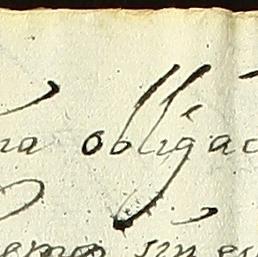 na obligac
emos sin es